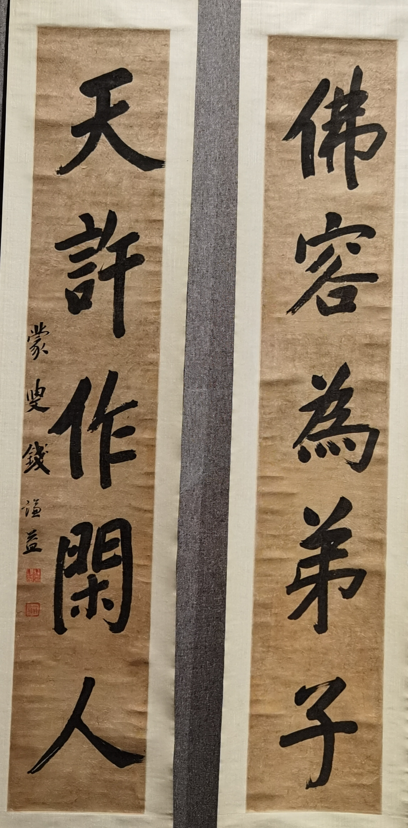 佛容為弟子
天許作閑人
蒙叟錢謙益